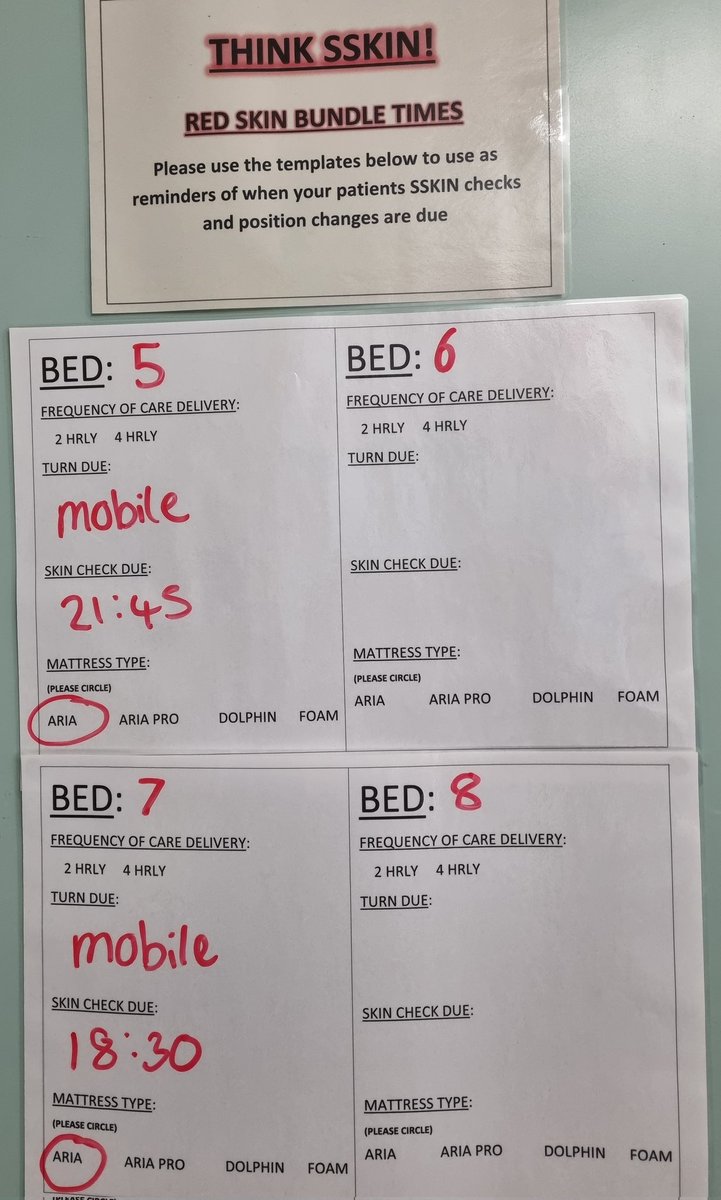 THINK SSKIN!
RED SKIN BUNDLE TIMES
Please use the templates below to use as
reminders of when your patients SSKIN checks
and position changes are due
BED: 5
FREQUENCY OF CARE DELIVERY:
2 HRLY 4 HRLY
TURN DUE:
mobile
SKIN CHECK DUE:
21:45
MATTRESS TYPE:
(PLEASE CIRCLE)
ARIA ARIA PRO DOLPHIN FOAM
BED: 6
FREQUENCY OF CARE DELIVERY:
2 HRLY 4 HRLY
TURN DUE:
SKIN CHECK DUE:
MATTRESS TYPE:
(PLEASE CIRCLE)
ARIA ARIA PRO DOLPHIN FOAM
BED: 7
FREQUENCY OF CARE DELIVERY:
2 HRLY 4 HRLY
TURN DUE:
mobile
SKIN CHECK DUE:
18:30
MATTRESS TYPE:
(PLEASE CIRCLE)
ARIA ARIA PRO DOLPHIN FOAM
(PLEASE CIRCLE)
BED: 8
FREQUENCY OF CARE DELIVERY:
2 HRLY 4 HRLY
TURN DUE:
SKIN CHECK DUE:
MATTRESS TYPE:
(PLEASE CIRCLE)
ARIA ARIA PRO DOLPHIN FOAM